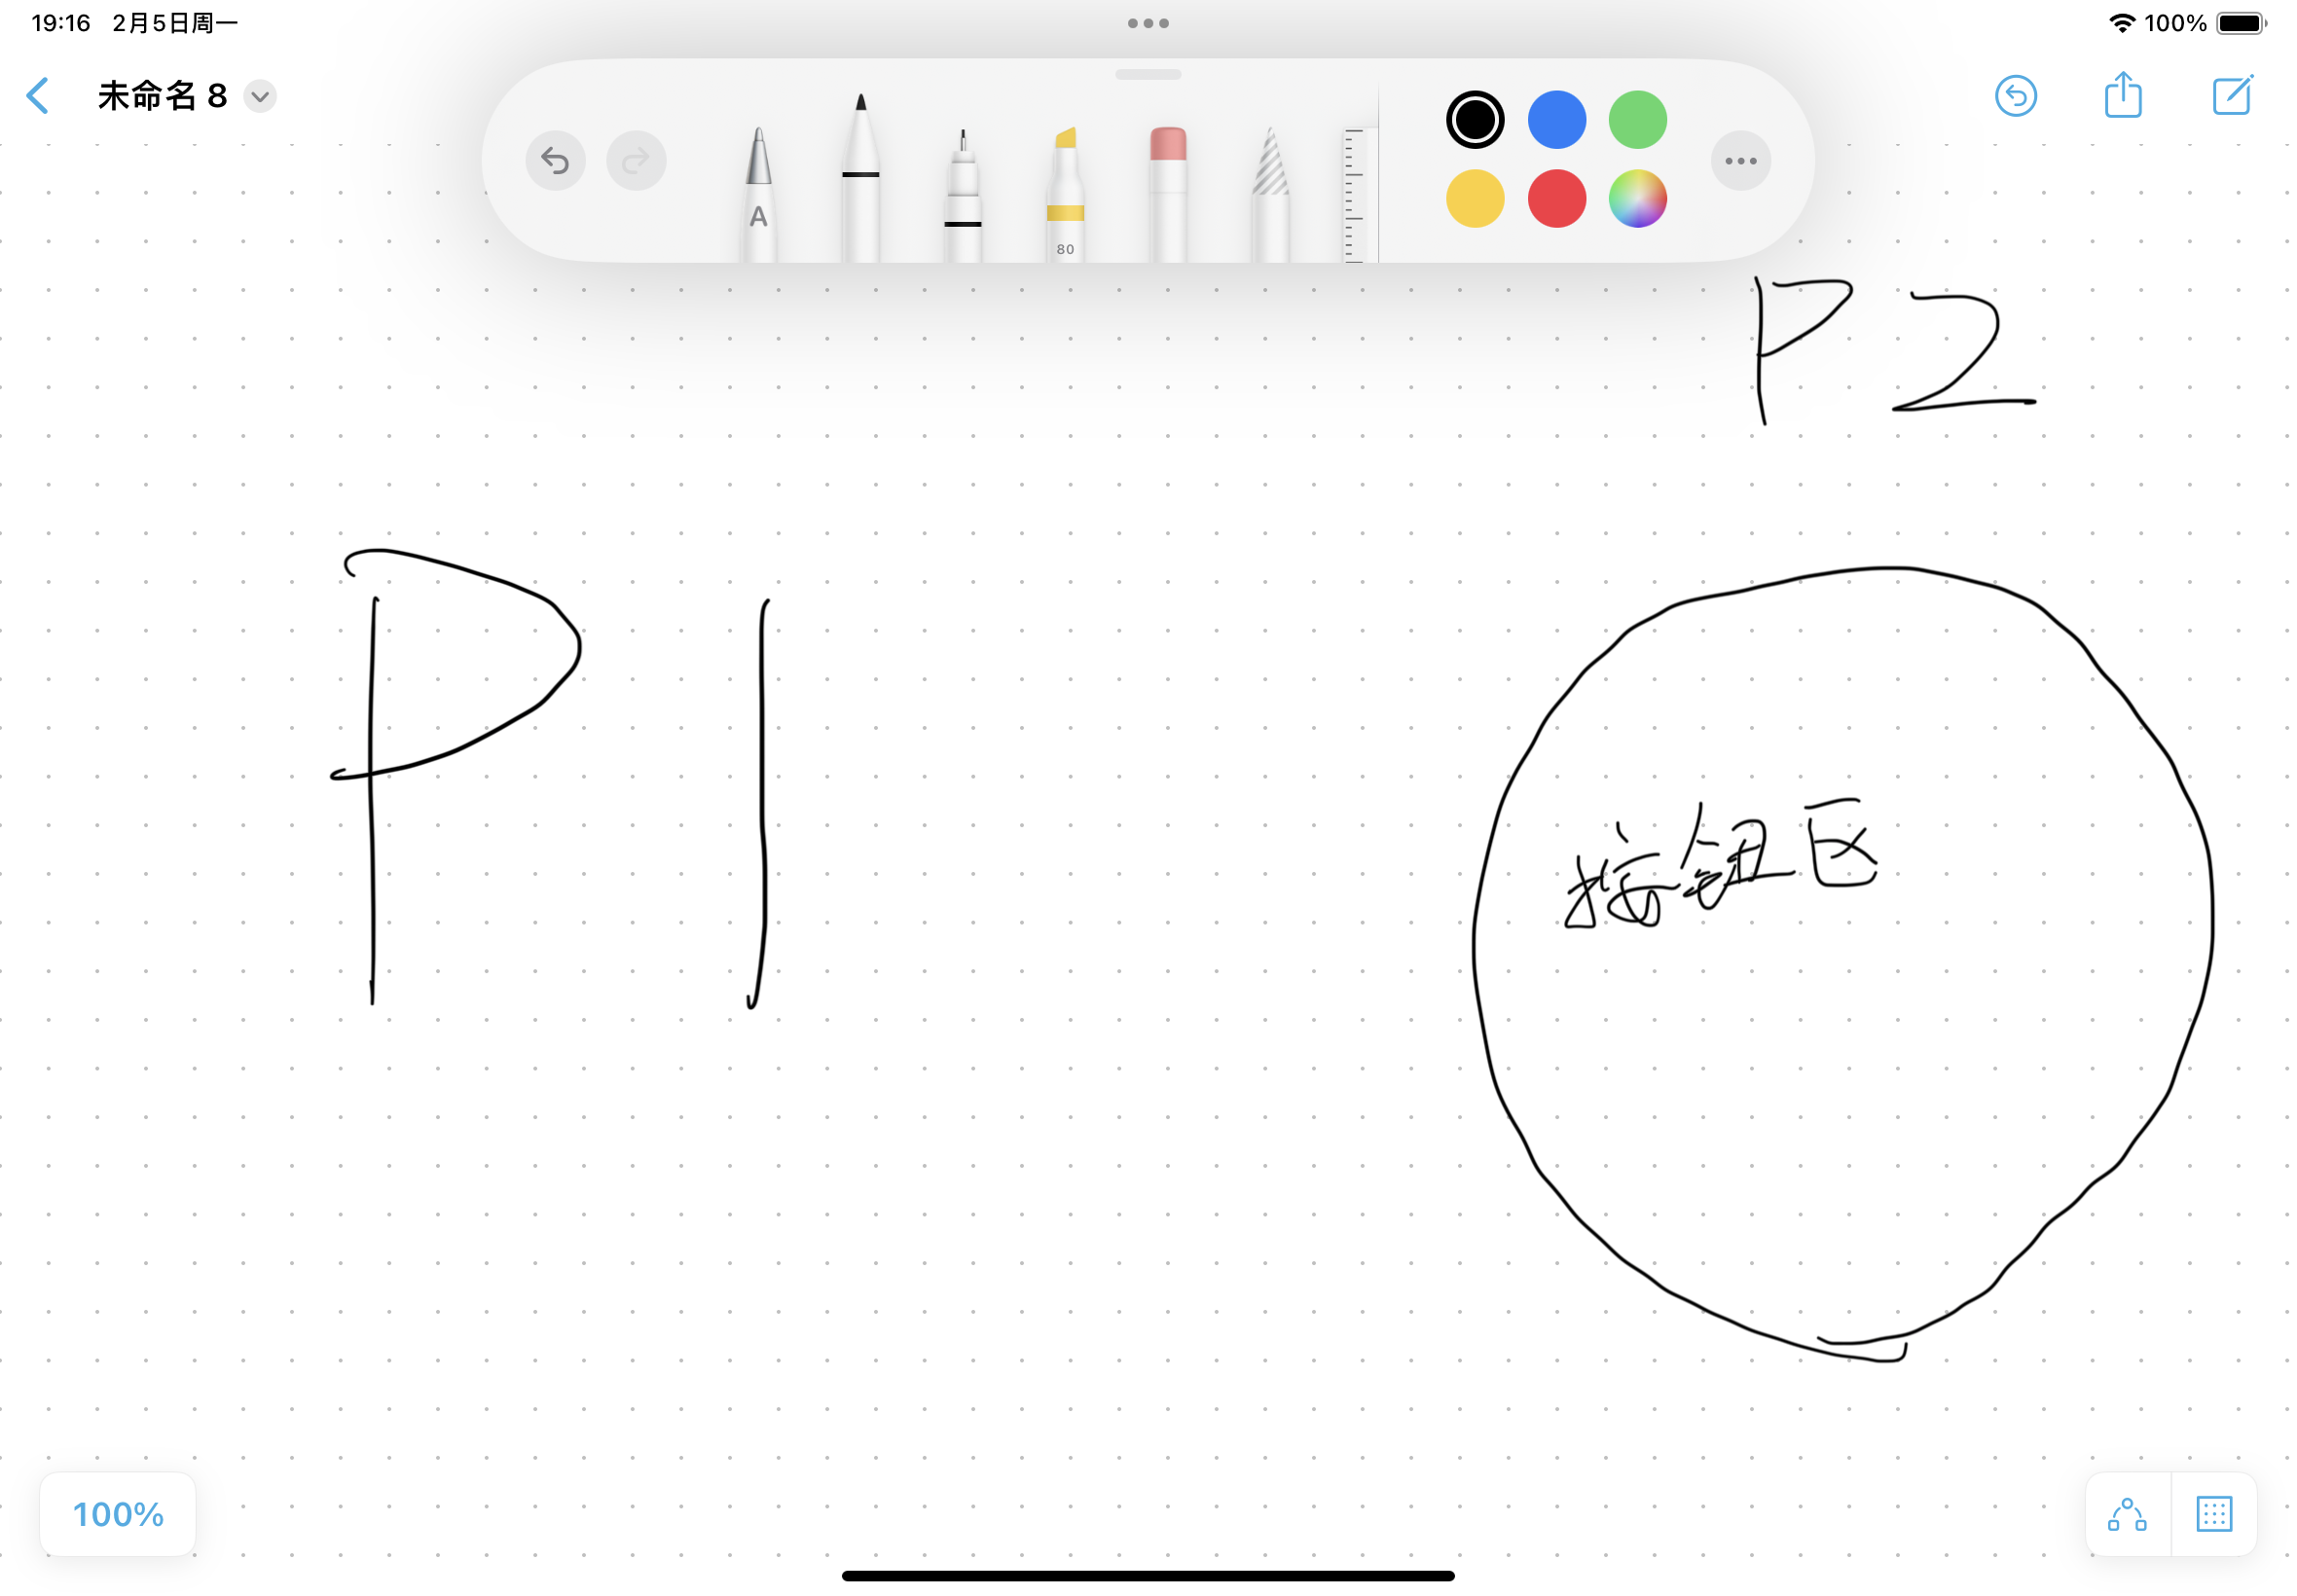 19:16 2月5日周一 100%
未命名 8
A
80
P2
P1
按钮区
100%